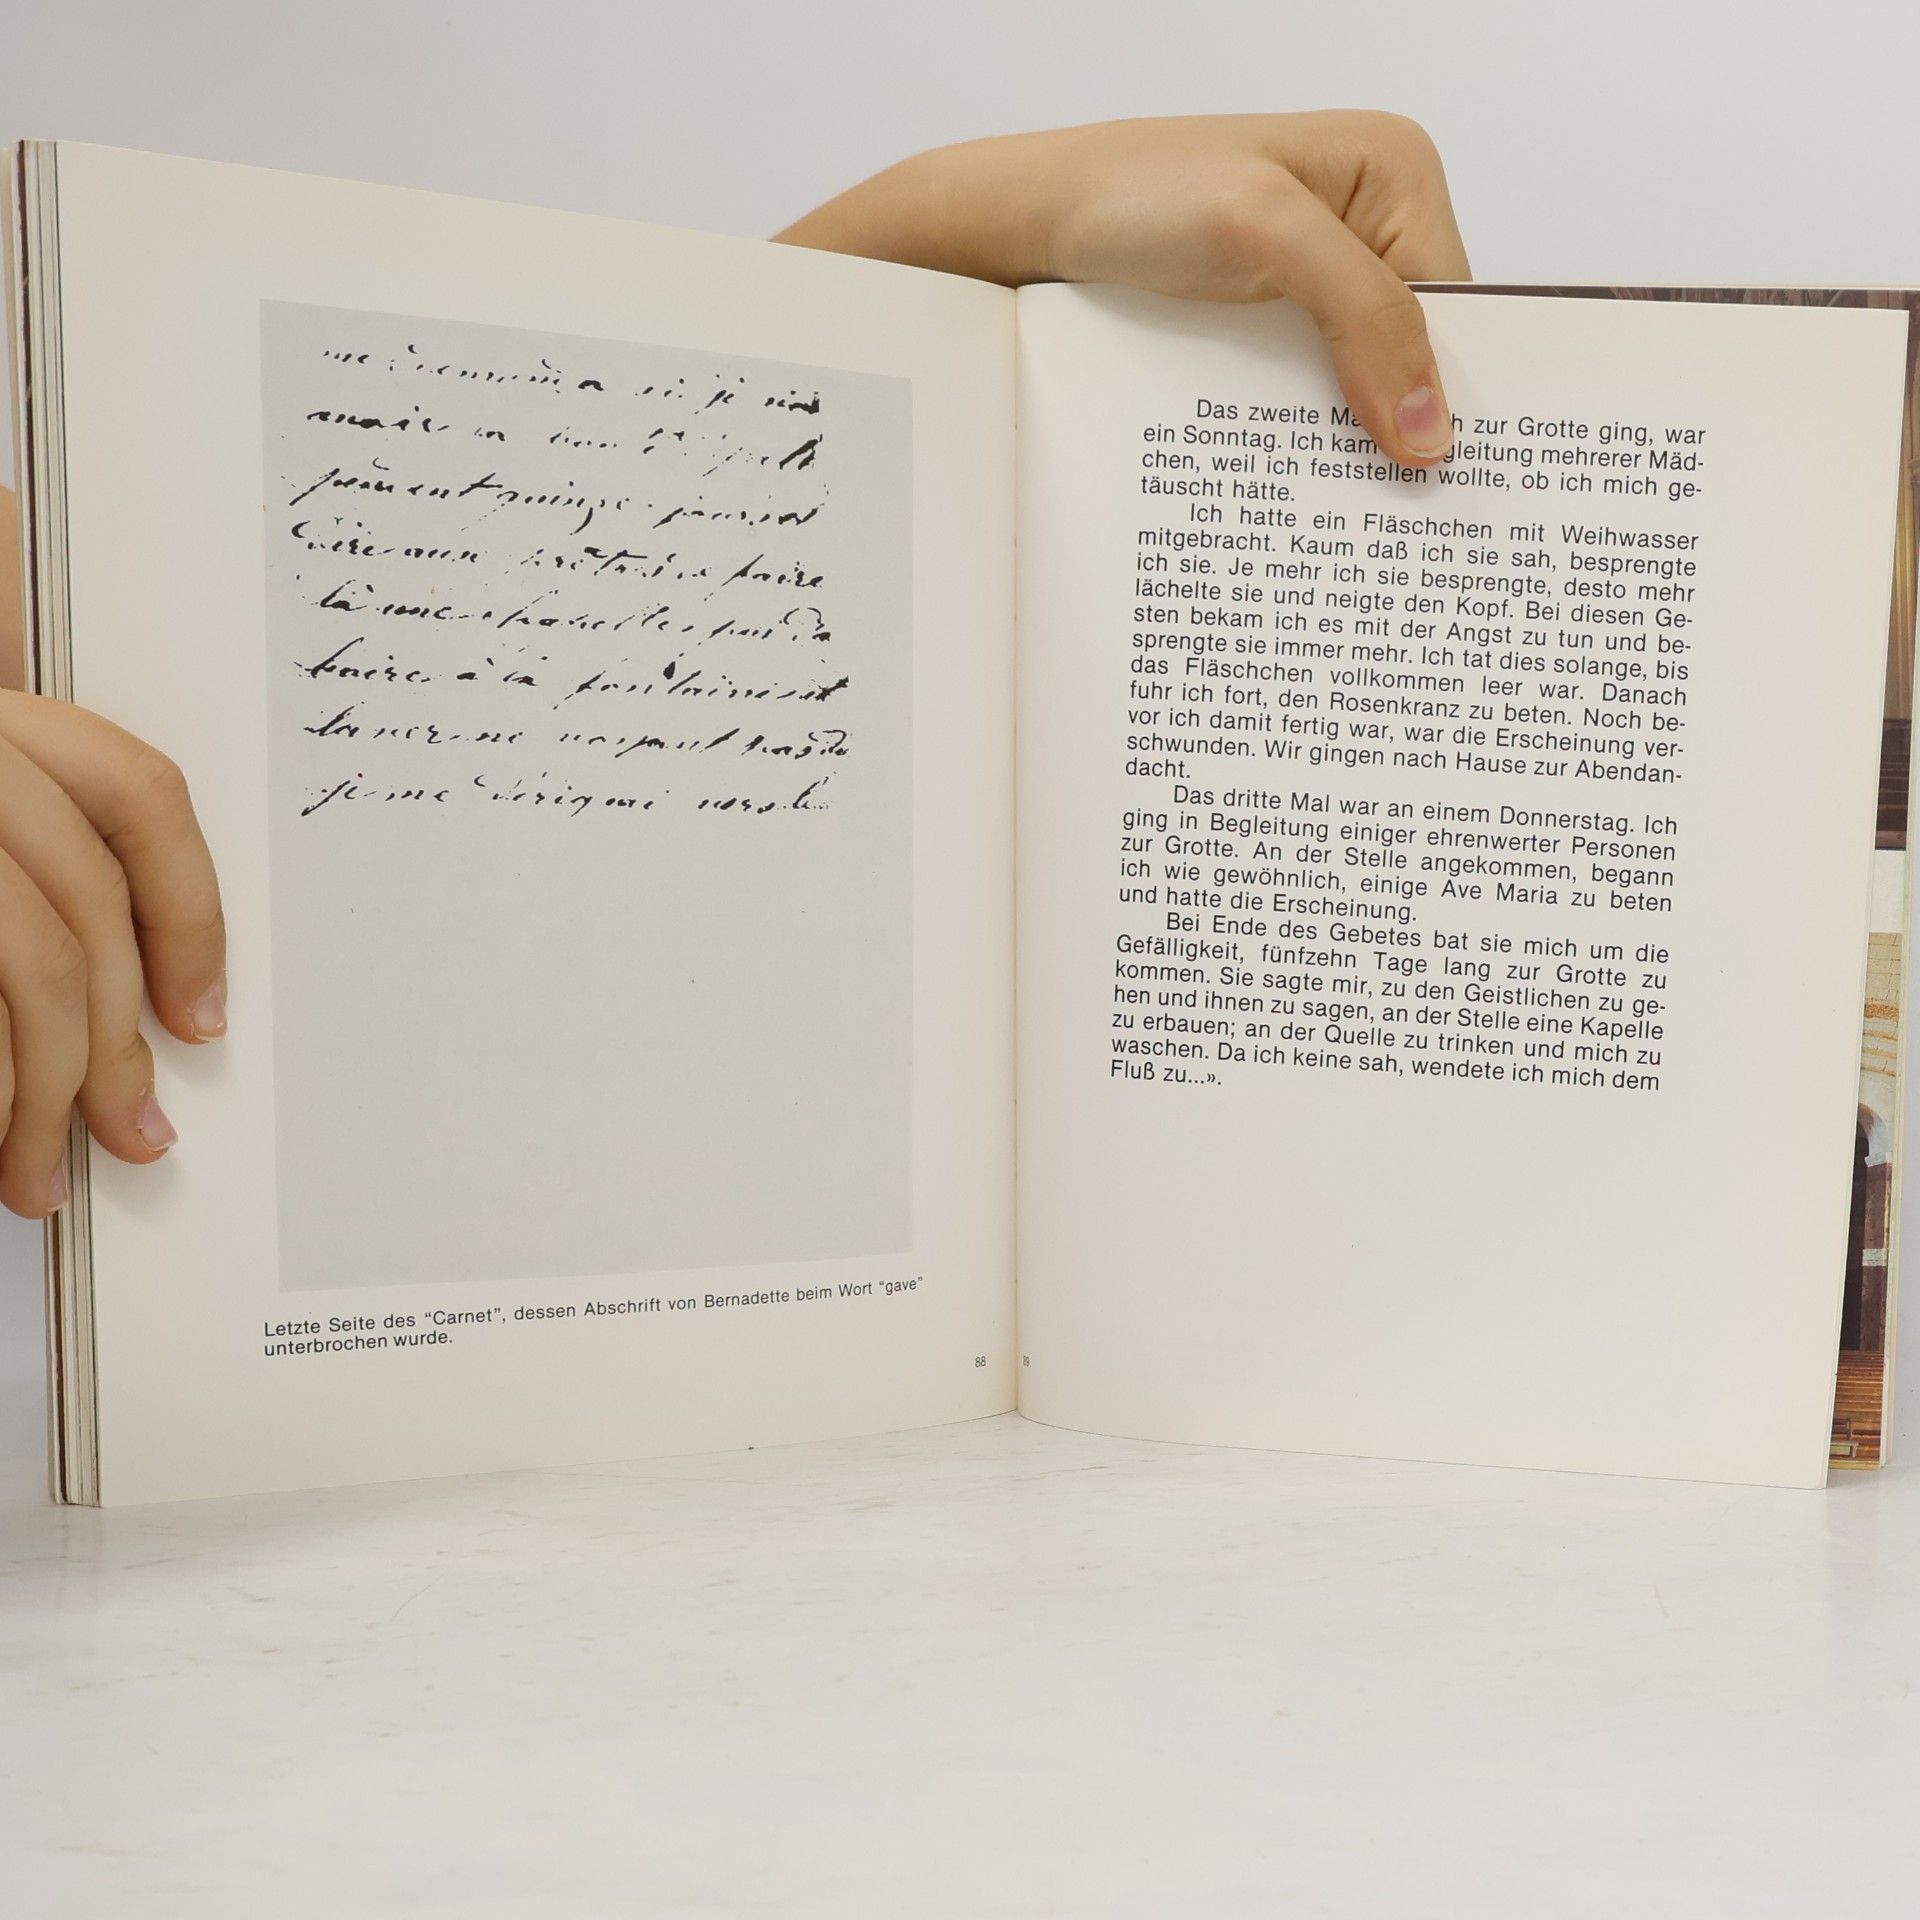 me
si je
mais
pendant quinze jours et
dire aux prêtres de faire
là une chapelle,
boire à la fontaine et
laver ne voyant pas
je me dirigai vers le
Letzte Seite des “Carnet”, dessen Abschrift von Bernadette beim Wort “gave”
unterbrochen wurde.
88
Das zweite zur Grotte ging, war
ein Sonntag. Ich kam mehrerer Mäd-
chen, weil ich feststellen wollte, ob ich mich ge-
täuscht hätte.
Ich hatte ein Fläschchen mit Weihwasser
mitgebracht. Kaum daß ich sie sah, besprengte
ich sie. Je mehr ich sie besprengte, desto mehr
lächelte sie und neigte den Kopf. Bei diesen Ge-
sten bekam ich es mit der Angst zu tun und be-
sprengte sie immer mehr. Ich tat dies solange, bis
das Fläschchen vollkommen leer war. Danach
fuhr ich fort, den Rosenkranz zu beten. Noch be-
vor ich damit fertig war, war die Erscheinung ver-
schwunden. Wir gingen nach Hause zur Abendan-
dacht.
Das dritte Mal war an einem Donnerstag. Ich
ging in Begleitung einiger ehrenwerter Personen
zur Grotte. An der Stelle angekommen, begann
ich wie gewöhnlich, einige Ave Maria zu beten
und hatte die Erscheinung.
Bei Ende des Gebetes bat sie mich um die
Gefälligkeit, fünfzehn Tage lang zur Grotte zu
kommen. Sie sagte mir, zu den Geistlichen zu ge-
hen und ihnen zu sagen, an der Stelle eine Kapelle
zu erbauen; an der Quelle zu trinken und mich zu
waschen. Da ich keine sah, wendete ich mich dem
Fluß zu...».
89